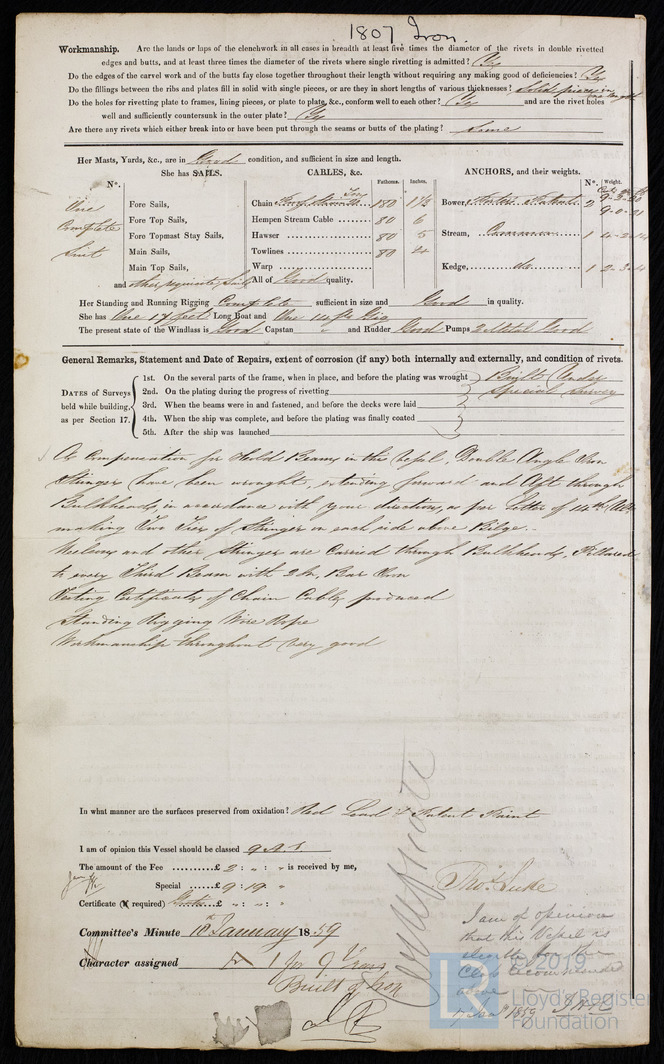 1807 Iron.
Workmanship. Are the lands or laps of the clenchwork in all cases in breadth at least five times the diameter of the rivets in double rivetted
edges and butts, and at least three times the diameter of the rivets where single rivetting is admitted? Yes
Do the edges of the carvel work and of the butts fay close together throughout their length without requiring any making good of deficiencies? Yes
Do the fillings between the ribs and plates fill in solid with single pieces, or are they in short lengths of various thicknesses? Solid pieces in
one length
Do the holes for rivetting plate to frames, lining pieces, or plate to plate, &c., conform well to each other? Yes and are the rivet holes
well and sufficiently countersunk in the outer plate? Yes
Are there any rivets which either break into or have been put through the seams or butts of the plating? Some
Her Masts, Yards, &c., are in Good condition, and sufficient in size and length.
She has SAILS. CABLES, &c. ANCHORS, and their weights.
N°. Fathoms. Inches. N°. Weight.
One Complete Suit
Fore Sails,
Fore Top Sails,
Fore Topmast Stay Sails,
Main Sails,
Main Top Sails,
and other requisite Sails
Chain 180 1 1/2
Hempen Stream Cable 80 6
Hawser 80 5
Towlines 80 4
Warp
All of Good quality.
Bower, 2
9-0-21
Stream, Common 1
Kedge, do. 1
Her Standing and Running Rigging Complete sufficient in size and Good in quality.
She has One 17 feet Long Boat and One 14 ft Gig
The present state of the Windlass is Good Capstan " and Rudder Good Pumps 2 Metal Good
General Remarks, Statement and Date of Repairs, extent of corrosion (if any) both internally and externally, and condition of rivets.
DATES of Surveys
held while building,
as per Section 17.
1st. On the several parts of the frame, when in place, and before the plating was wrought Built Under
2nd. On the plating during the progress of rivetting Special Survey
3rd. When the beams were in and fastened, and before the decks were laid
4th. When the ship was complete, and before the plating was finally coated
5th. After the ship was launched
As Compensation for Hold Beams in this Vessel, Double Angle Iron
Stringers have been wrought, extending forward and Aft through
Bulkheads, in accordance with your directions, as per Letter of 14th Ulto,
making Two Tiers of Stringers on each side above Bilge.
Keelsons and other Stringer are Carried through Bulkheads, Pillared
to every Third Beam with 2 In. Bar Iron
Testing Certificate of Chain Cable produced
Standing Rigging Wire Rope
Workmanship throughout very good
In what manner are the surfaces preserved from oxidation? Red Lead & Patent Paint
I am of opinion this Vessel should be classed 9 A.1.
The amount of the Fee ..........£ 2 : „ : „ is received by me,
Special .......£ 9 : 19 „
Certificate (if required) £ „ : „ : „
Thos. Luke
Committee's Minute 18th January 1859
Character assigned A 1 for 9 Years
Built of Iron
I am of opinion
that this Vessel is
eligible for the
Class recommended
above
7 Jany 1859
©2019
LR
Lloyd's Register
Foundation